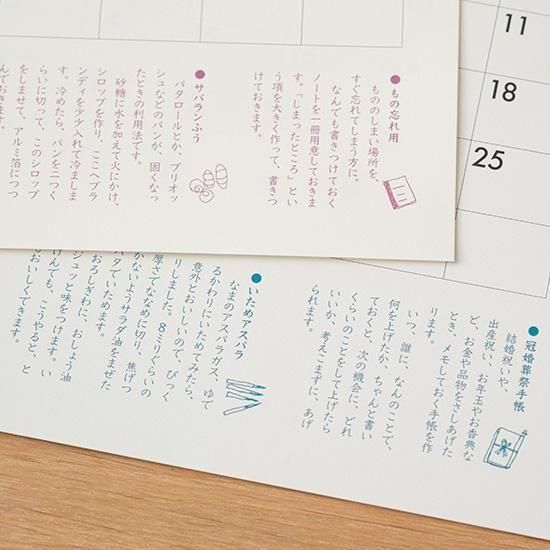 11
18
25
●もの忘れ用
もののしまい場所を、
すぐ忘れてしまう方に。
なんでも書きつけておく
ノートを一冊用意しておきま
す。「しまったところ」とい
う項を大きく作って、書きつ
けておきます。
●サバランふう
バタロールとか、ブリオッ
シュなどのパンが、固くなっ
たときの利用法です。
砂糖に水を加えて火にかけ、
シロップを作り、ここへブラ
ンディを少々入れて冷まし
す。冷めたら、パンを二つく
らいに切って、このシロップ
をしませて、アルミ箔につつ
んでおきます。
●冠婚葬祭手帳
結婚祝いや、
出産祝い、お年玉やお香典な
ど、お金や品物をさしあげた
とき、メモしておく手帳を作
ります。
いつ、誰に、なんのことで、
何を上げたか、ちゃんと書い
ておくと、次の機会に、どれ
くらいのことをして上げたら
いいか、考えこまずに、あげ
られます。
●いためアスパラ
なまのアスパラガス、ゆで
るかわりにいためてみたら、
意外とおいしいので、びっく
りしました。8ミリぐらいの
厚さでななめに切り、焦げつ
かないようサラダ油をませた
バタでいためます。
おろしぎわに、おしょう油
シュッと味をつけます。い
んでも、こうやると、と
おいしくできます。